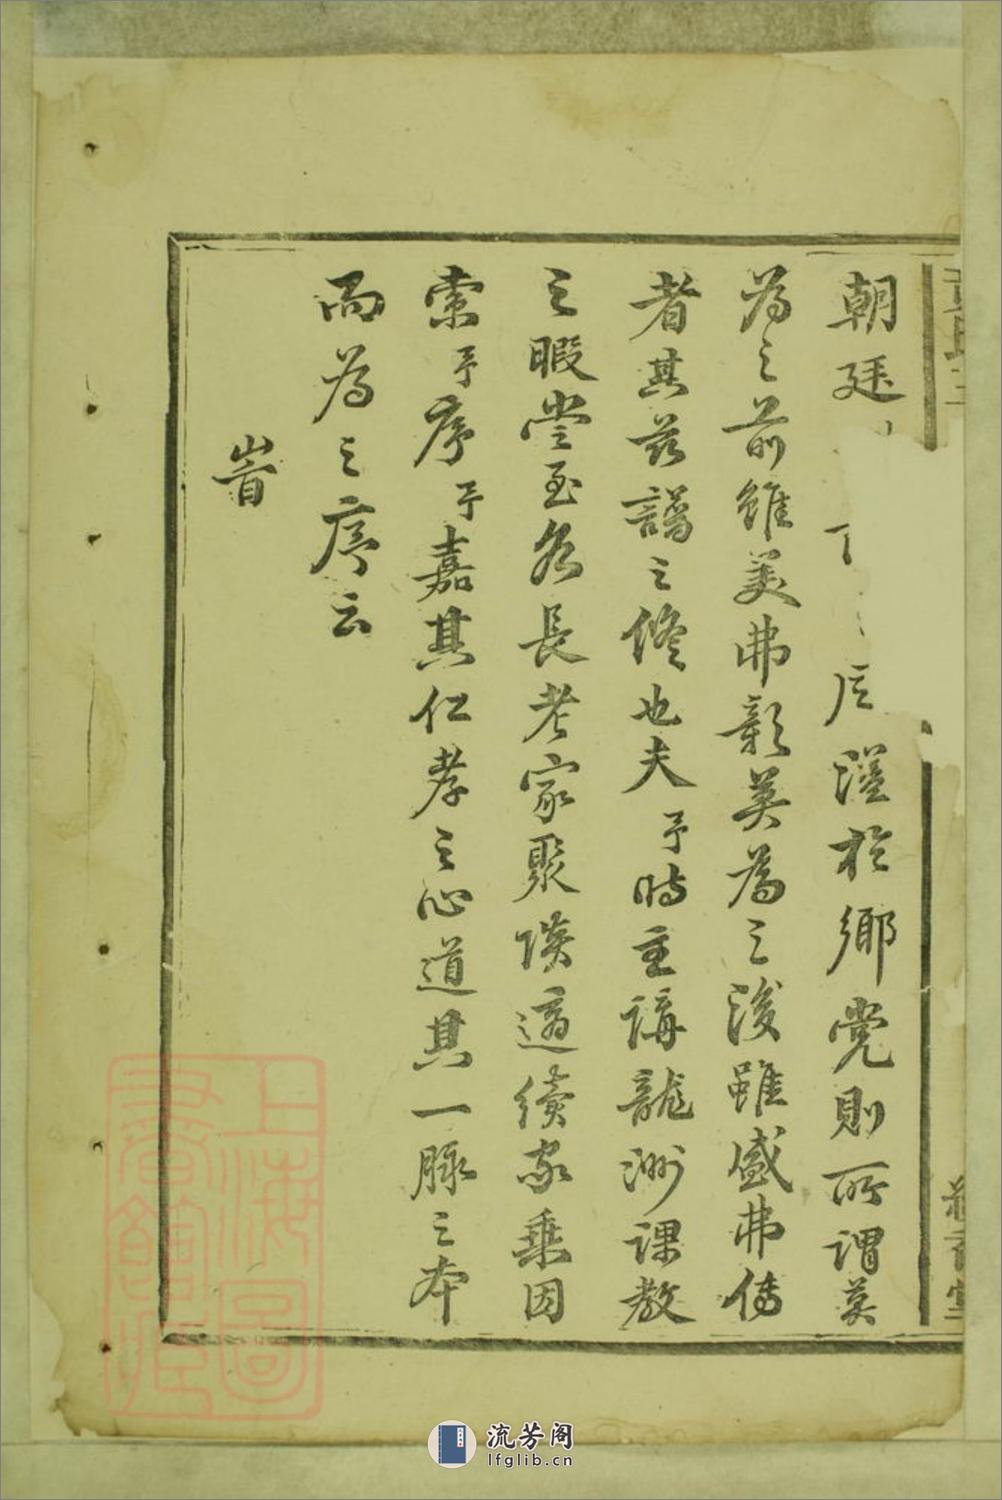 朝廷
謹於鄉党則所謂莫
為之前雖美弗彰莫為之後雖盛弗傳
者其茲譜之修也夫予時主講龍洲課教
之暇嘗至名長老家聚談適續家乘因
索予序予嘉其仁孝之心道其一脉之本
而為之序云
旹
上海圖
書館藏
流芳阁
lfglib.cn